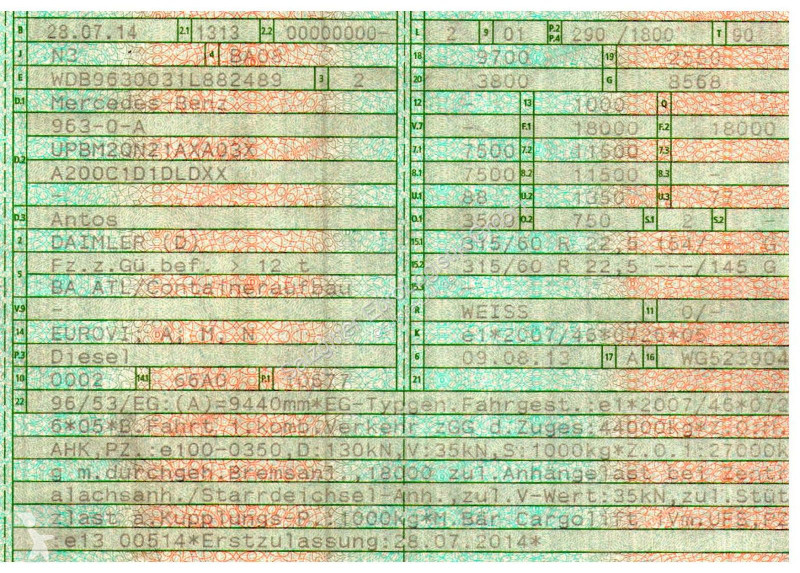 B 28.07.14 2.1 1313 2.2 00000000-
J N3 4 BA08
E WDB9630031L882489 3 2
D.1 Mercedes-Benz
963-0-A
D.2 UPBM2QN21AXA03X
A200C1D1DLDXX
-
D.3 Antos
2 DAIMLER (D)
5 Fz.z.Gü.bef. > 12 t
BA ATL/Containeraufbau
V.9 -
14 EUROVI; A; M, N
P.3 Diesel
10 0002 14.1 66A0 P.1 10677
L 2 9 01 P.2 P.4 290 /1800 T 90
18 9700 19 2550
20 3800 G 8568
12 - 13 1000 Q -
V.7 - F.1 18000 F.2 18000
7.1 7500 7.2 11500 7.3 -
8.1 7500 8.2 11500 8.3 -
U.1 88 U.2 1350 U.3
O.1 3500 O.2 750 S.1 2 S.2 -
15.1 315/60 R 22,5 154/ G
15.2 315/60 R 22,5 ---/145 G
15.3 -
R WEISS 11 0/-
K e1*2007/46*0726*05
6 09.08.13 17 A 16 WG523904
21
22 96/53/EG:(A)=9440mm*EG-Typgen.Fahrgest.:e1*2007/46*07
6*05*B.Fahrt i.komb.Verkehr zGG d.Zuges:44000kg*Z.O.
AHK,PZ.:e100-0350,D:130kN,V:35kN,S:1000kg*Z.O.1:27000k
g m.durchgeh.Bremsanl.,18000 zul.Anhängelast bei Zent
alachsanh./Starrdeichsel-Anh.,zul.V-Wert:35kN,zul.Stüt
zlast a.Kupplungs-P.:1000kg*M.Bär Cargolift m.UFS,Pz
:e13 00514*Erstzulassung:28.07.2014*